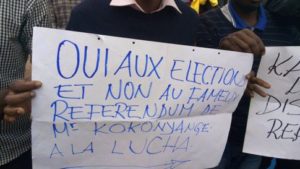 OUI AUX ELECTION
ET NON AU FAMEUX
REFERENDUM DE
Me KOKONYANGE
A LA LUCHA
KA
L
DIS
RE